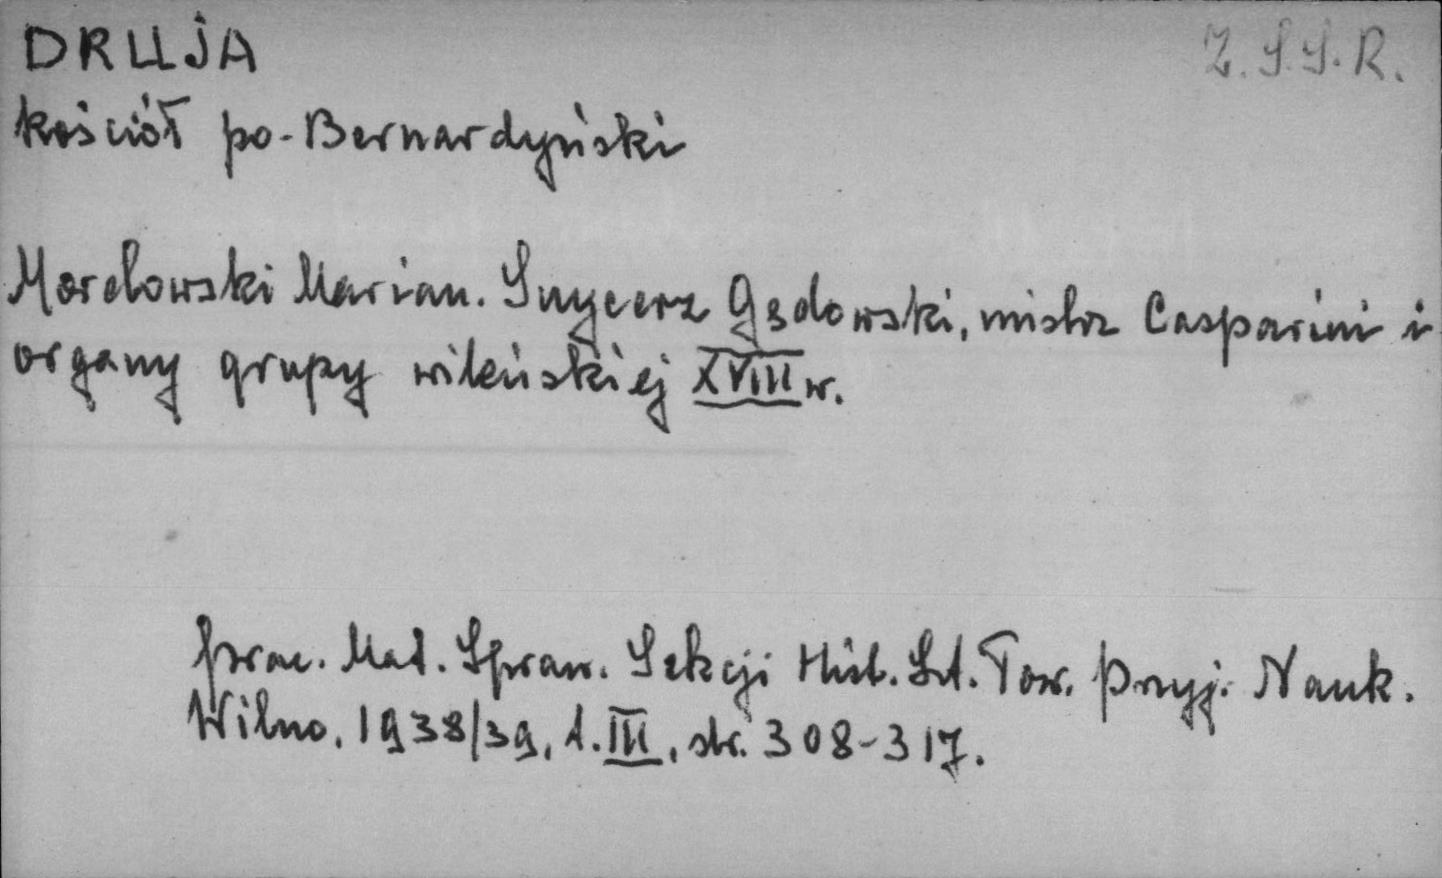 DRUJA
Z.S.S.R.
kościół po-Bernardyński
Morelowski Marian. Snycerz Gędowski, mistrz Casparini i
organy grupy wileńskiej XVIII w.
Prac. Mat. Spraw. Sekcji Hist. Szt. Tow. Przyj. Nauk.
Wilno, 1938/39, t. III, str. 308-317.